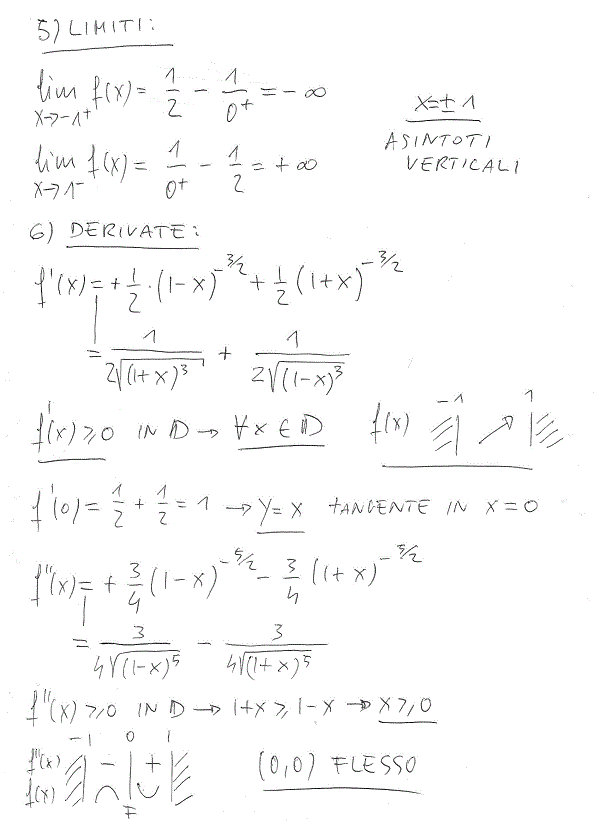 5) LIMITI:
lim x→-1⁺ f(x) = 1/2 - 1/0⁺ = -∞
x=±1
ASINTOTI
VERTICALI
lim x→1⁻ f(x) = 1/0⁺ - 1/2 = +∞
6) DERIVATE:
f'(x) = +1/2·(1-x)^-3/2 + 1/2 (1+x)^-3/2
= 1/2√(1+x)³ + 1/2√(1-x)³
f'(x) ≥ 0 IN D → ∀x∈D f(x) -1 ↗ 1
f'(0) = 1/2 + 1/2 = 1 → y=x TANGENTE IN x=0
f''(x) = +3/4 (1-x)^-5/2 - 3/4 (1+x)^-5/2
= 3/4√(1-x)⁵ - 3/4√(1+x)⁵
f''(x) ≥ 0 IN D → 1+x ≥ 1-x → x ≥ 0
-1 0 1
f''(x) - +
f(x) ⌢ ⌣
F
(0,0) FLESSO